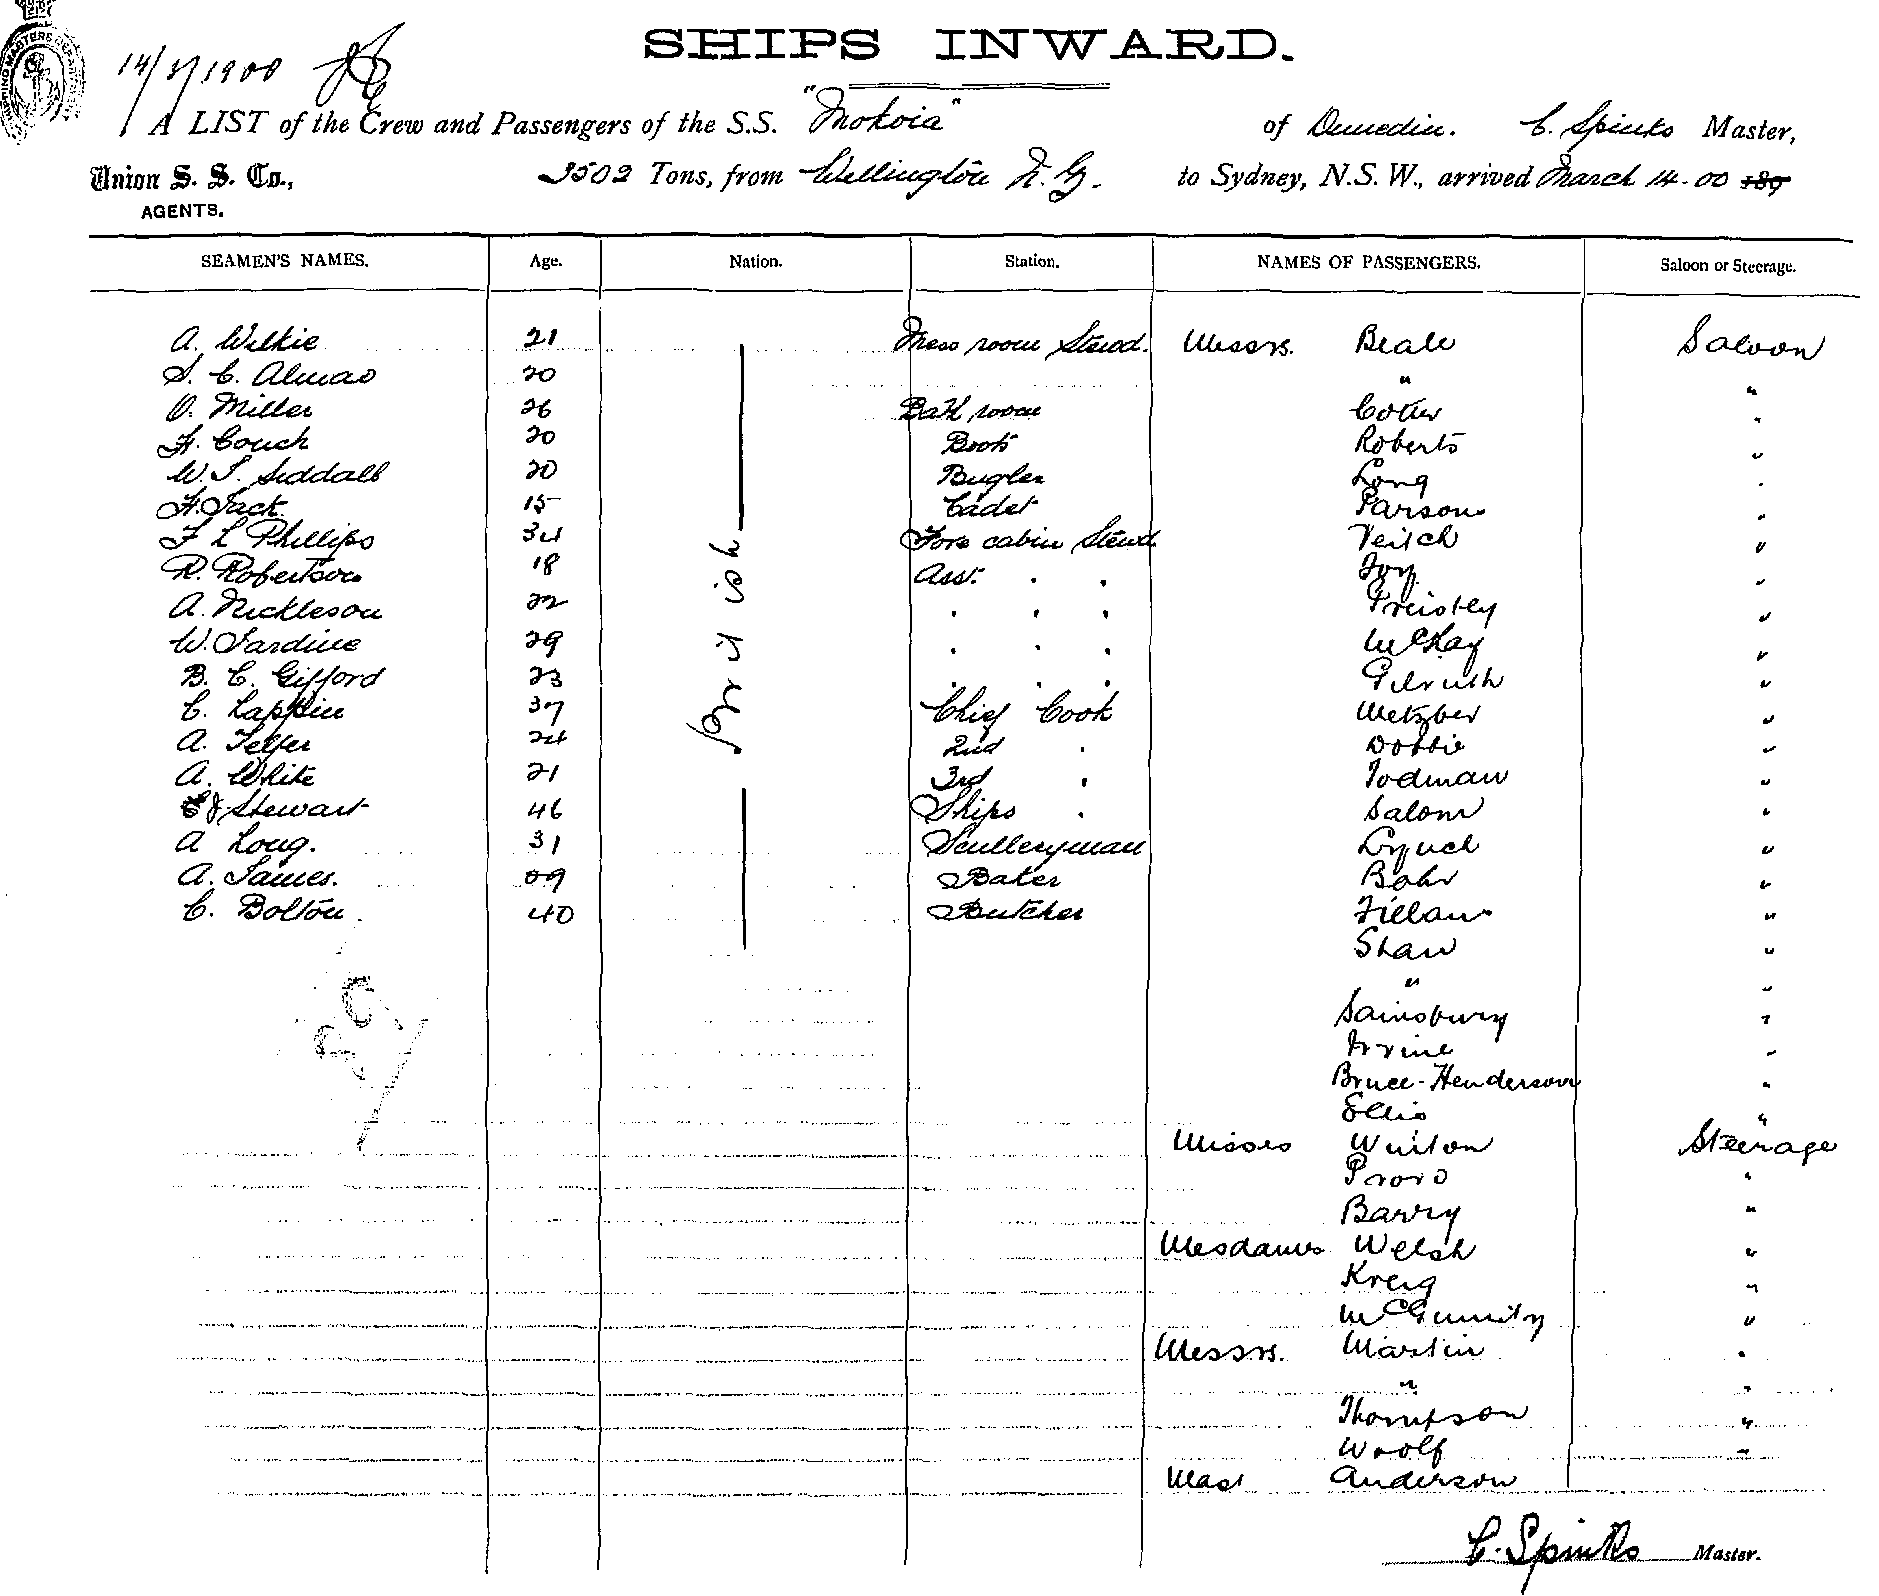 SHIPS INWARD.
14/3/1900
A LIST of the Crew and Passengers of the S.S. "Mokoia" of Dunedin. C. Spinks Master,
Union S. S. Co., 3502 Tons, from Wellington N.Z. to Sydney, N.S.W., arrived March 14-00 189
AGENTS.
SEAMEN'S NAMES. Age. Nation. Station. NAMES OF PASSENGERS. Saloon or Steerage.
A. Wilkie 21 Mess room Stewd. Messrs. Beale Saloon
S. C. Almao 20 " "
O. Miller 26 Bath room Cotter "
H. Couch 20 Boots Roberts "
W. S. Siddall 20 Bugler Long "
H. Jack. 15 Cadet Parsons "
F L Phillips 34 Fore cabin Stewd Veitch "
R. Robertson 18 Asst. " " Joy "
A. Nickleson 22 " " " Preistley "
W. Jardine 29 " " " McKay "
B. C. Gifford 23 " " " Gilruth "
British
C. Lappin 37 Chief Cook "
A. Telfer 24 2nd " Dobbie "
A. White 21 3rd " Todman "
C J Stewart 46 Ships " Salom "
A Long. 31 Sculleryman Lynch "
A. James. 29 Baker Bohr "
C. Bolton. 40 Butcher Fillans "
Shaw "
" "
Sainsbury "
Irvine "
Bruce-Henderson "
Ellis "
Misses Winton Steerage
"
Barry "
Mesdames Welsh "
Kreig "
McGunnity "
Messrs. Martin "
" "
Thompson "
Woolf "
Mast Anderson
C. Spinks Master.